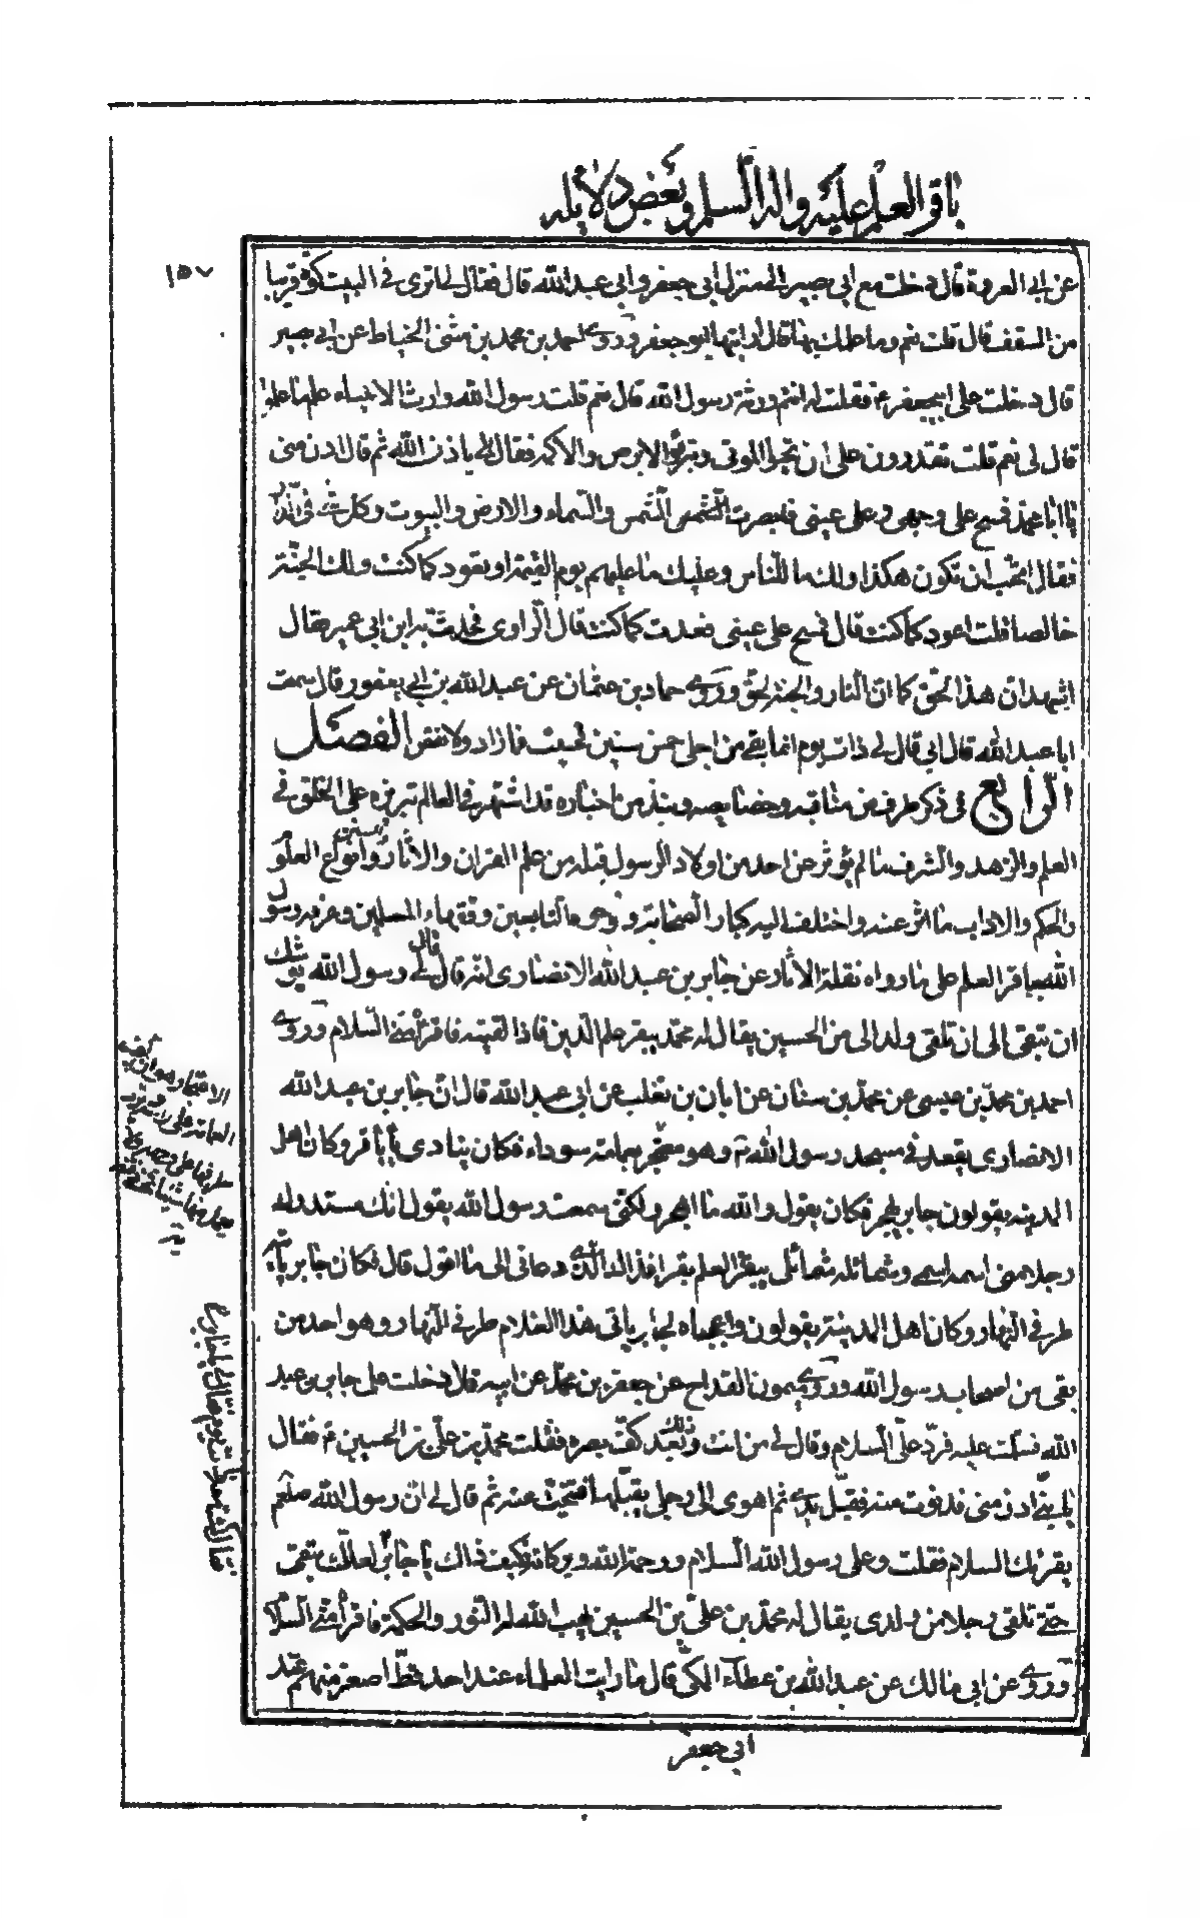 باقر العلم عليه واله السلم وبعض دلائله
١٥٧
عن ابي العروة قال دخلت مع ابي بصير الى منزل ابي جعفر وابي عبد الله قال فقال لي اترى في البيت كوة قريبا
من السقف قال قلت نعم وما علمك بها قال ارانيها ابو جعفر وروى احمد بن محمد بن مثنى الخياط عن ابي بصير
قال دخلت على ابيجعفر ع فقلت له انتم ورثة رسول الله قال نعم قلت رسول الله وارث الانبياء علم ما علموا
قال لى نعم قلت تقدرون على ان تحيوا الموتى وتبرؤا الابرص والاكمه فقال لي باذن الله ثم قال ادن منى
يا ابا محمد فمسح على وجهى وعلى عينى فابصرت الشمس والسماء والارض والبيوت وكل شئ في الدار
فقال اتحب ان تكون هكذا ولك ما للناس وعليك ما عليهم يوم القيمة او تعود كما كنت ولك الجنة
خالصا قلت اعود كما كنت قال فمسح على عينى فعدت كما كنت قال الراوى فحدثت به ابن ابي عمير فقال
اشهد ان هذا الحق كما ان النار والجنة لحق وروى حماد بن عثمان عن عبد الله بن ابي يعفور قال سمعت
ابا عبد الله قال ان ابي قال لي ذات يوم انما بقى من اجلى خمس سنين فحسبت فما زاد ولا نقص الفصل
الرابع في ذكر طرف من مناقبه وخصايصه ونبذ من اخباره قد اشتهر في العالم تبرزه على الخلق في
العلم والزهد والشرف ما لم يؤثر عن احد من اولاد الرسول قبله من علم القران والاثار والسنن وانواع العلوم
والحكم والاداب ما اثر عنه واختلف اليه كبار الصحابة ووجوه التابعين وفقهاء المسلمين وعرفه رسول
الله بباقر العلم على ما رواه نقلة الاثار عن جابر بن عبد الله الانصارى انه قال قال لي رسول الله يوشك
ان تبقى الى ان تلقى ولدا لى من الحسين يقال له محمد يبقر علم الدين فاذا لقيته فاقرأه منى السلام وروى
احمد بن محمد بن عيسى عن محمد بن سنان عن ابان بن تغلب عن ابي عبد الله قال ان جابر بن عبد الله
الانصارى يقعد في مسجد رسول الله ص وهو معتجر بعمامة سوداء فكان ينادى يا باقر وكان اهل
المدينه يقولون جابر يهجر فكان يقول والله ما اهجر ولكنى سمعت رسول الله يقول انك ستدرك
رجلا منى اسمه اسمى وشمائله شمائلى يبقر العلم بقرا فذلك الذى دعانى الى ما اقول قال فكان جابر يأتيه
طرفى النهار وكان اهل المدينة يقولون واعجباه لجابر ياتى هذا الغلام طرفى النهار وهو احد من
بقى من اصحاب رسول الله وروى ميمون القداح عن جعفر بن محمد عن ابيه قال دخلت على جابر بن عبد
الله فسلمت عليه فرد على السلام وقال لي من انت وذلك بعد كف بصره فقلت محمد بن على بن الحسين ع فقال
يا بنى ادن منى فدنوت منه فقبل يدى ثم اهوى الى رجلى يقبلها فتنحيت عنه ثم قال لي ان رسول الله صلعم
يقرئك السلام فقلت وعلى رسول الله السلام ورحمة الله وبركاته وكيف ذاك يا جابر لعلك تبقى
حتى تلقى رجلا من ولدى يقال له محمد بن على بن الحسين يهب الله له النور والحكمة فاقرأه منى السلام
وروى عن ابي مالك عن عبد الله بن عطاء المكى قال ما رايت العلماء عند احد قط اصغر منهم عند
ابى جعفر